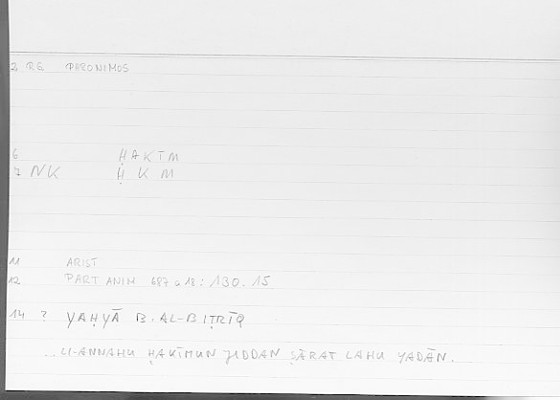 3 RE PARONIMOS
6 ḤAKĪM
7 NK Ḥ K M
11 ARIST
12 PART ANIM 687 a 18 : 130.15
14 ? YAḤYĀ B. AL-BIṬRĪQ
...LI-ANNAHU ḤAKĪMUN JIDDAN ṢĀRAT LAHU YADĀN.